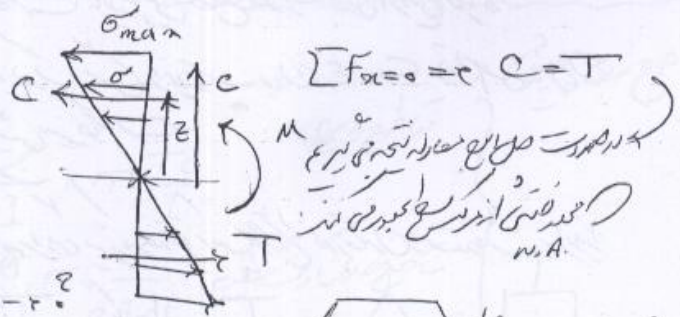 σmax
C σ c
ΣFx=0 => C=T
z
M
در صورت حل این معادله نتیجه می گیریم
محور خنثی از مرکز سطح عبور می کند
N.A.
T